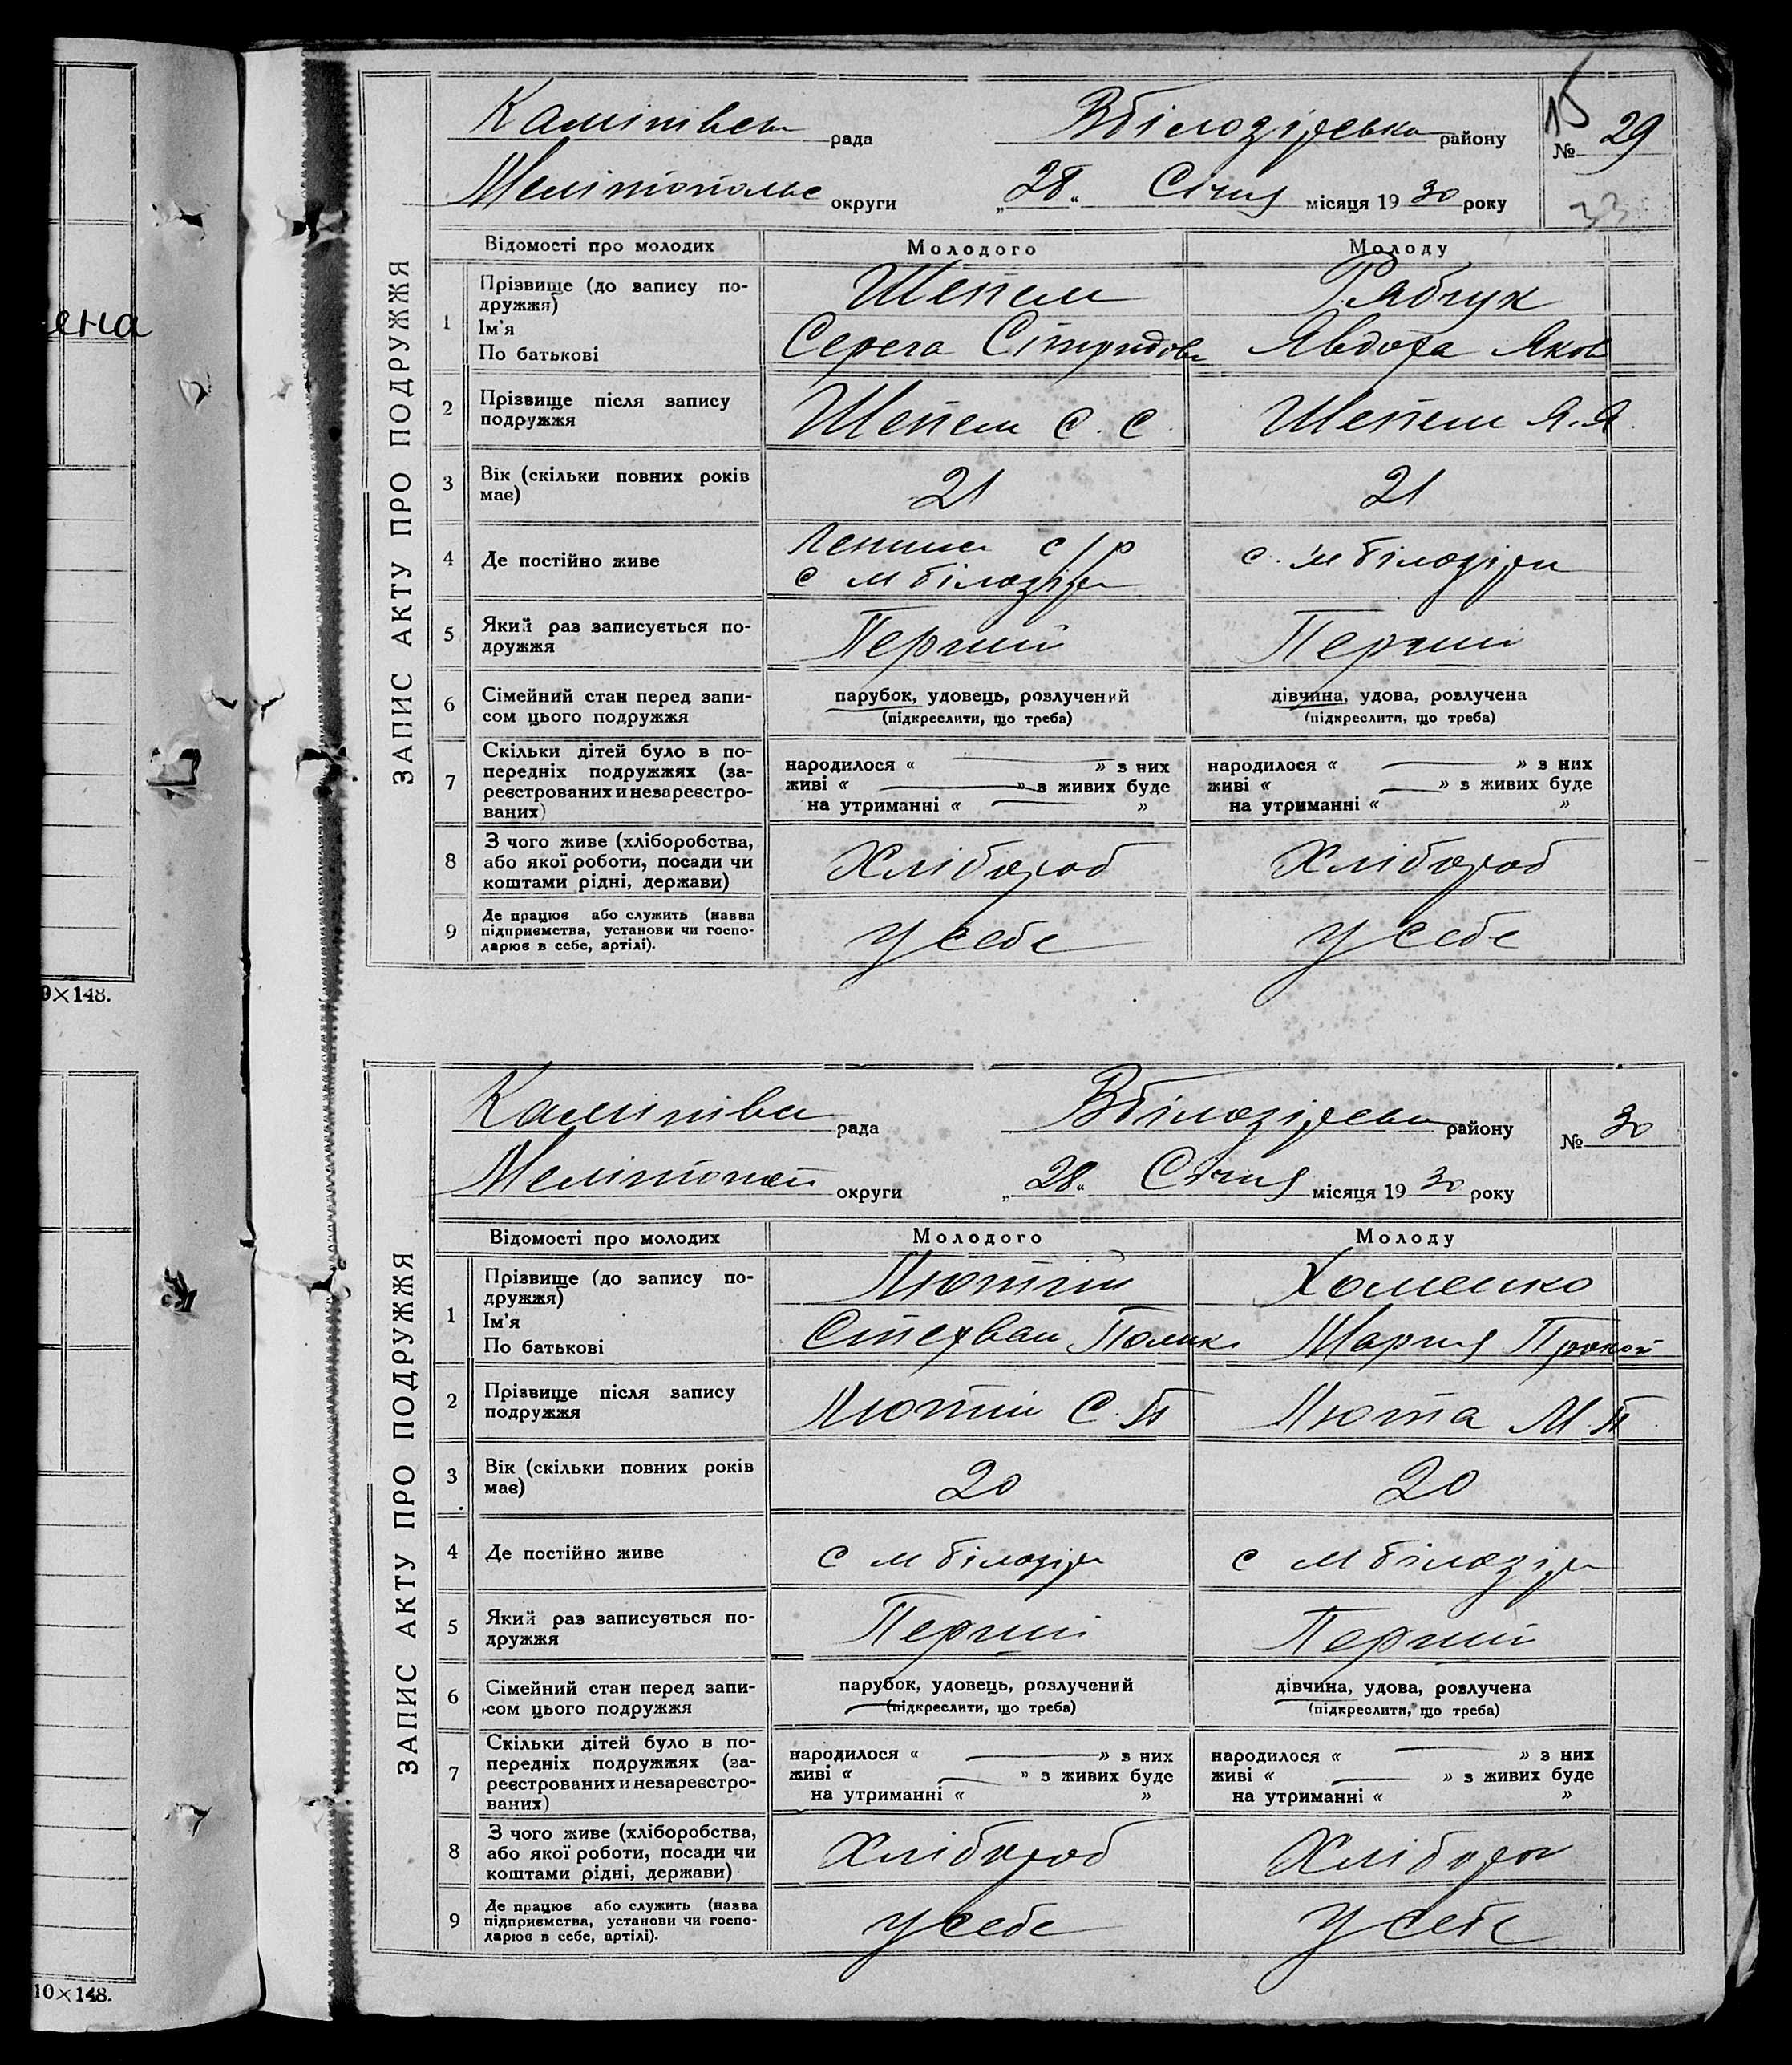 ена
9×148.
10×148.
ЗАПИС АКТУ ПРО ПОДРУЖЖЯ
15
Калінівськ рада Вбілозірська району № 29
Мелітопольс округи „28" Січня місяця 1930 року
33
Відомості про молодих Молодого Молоду
1 Прізвище (до запису по-
дружжя) Шепель Рябчук
Ім'я
По батькові Серега Спиридов Явдоха Яков
2 Прізвище після запису
подружжя Шепель С. С. Шепель Я. Я.
3 Вік (скільки повних років
має) 21 21
4 Де постійно живе Леніна с/р
с м білозірки с. м білозірки
5 Який раз записується по-
дружжя Перший Перший
6 Сімейний стан перед запи-
сом цього подружжя парубок, удовець, розлучений дівчина, удова, розлучена
(підкреслити, що треба) (підкреслити, що треба)
7 Скільки дітей було в по-
передніх подружжях (за-
реєстрованих и незареєстро-
ваних)
народилося « » з них народилося « » з них
живі « » з живих буде живі « » з живих буде
на утриманні « » на утриманні « »
8 З чого живе (хліборобства,
або якої роботи, посади чи
коштами рідні, держави) Хлібороб Хлібороб
9 Де працює або служить (назва
підприємства, установи чи госпо-
дарює в себе, артілі). у себе у себе
ЗАПИС АКТУ ПРО ПОДРУЖЖЯ
Калінівсь рада Вбілозірськи району № 30
Мелітопол округи „28" Січня місяця 1930 року
Відомості про молодих Молодого Молоду
1 Прізвище (до запису по-
дружжя) Лютий Хоменко
Ім'я
По батькові Стехван Полик Мария Прокоп
2 Прізвище після запису
подружжя Лютий С. П. Люта М. П.
3 Вік (скільки повних років
має) 20 20
4 Де постійно живе с м білозірк с м білозірк
5 Який раз записується по-
дружжя Перший Перший
6 Сімейний стан перед запи-
сом цього подружжя парубок, удовець, розлучений дівчина, удова, розлучена
(підкреслити, що треба) (підкреслити, що треба)
7 Скільки дітей було в по-
передніх подружжях (за-
реєстрованих и незареєстро-
ваних)
народилося « » з них народилося « » з них
живі « » з живих буде живі « » з живих буде
на утриманні « » на утриманні « »
8 З чого живе (хліборобства,
або якої роботи, посади чи
коштами рідні, держави) Хлібороб Хлібороб
9 Де працює або служить (назва
підприємства, установи чи госпо-
дарює в себе, артілі). у себе у себе